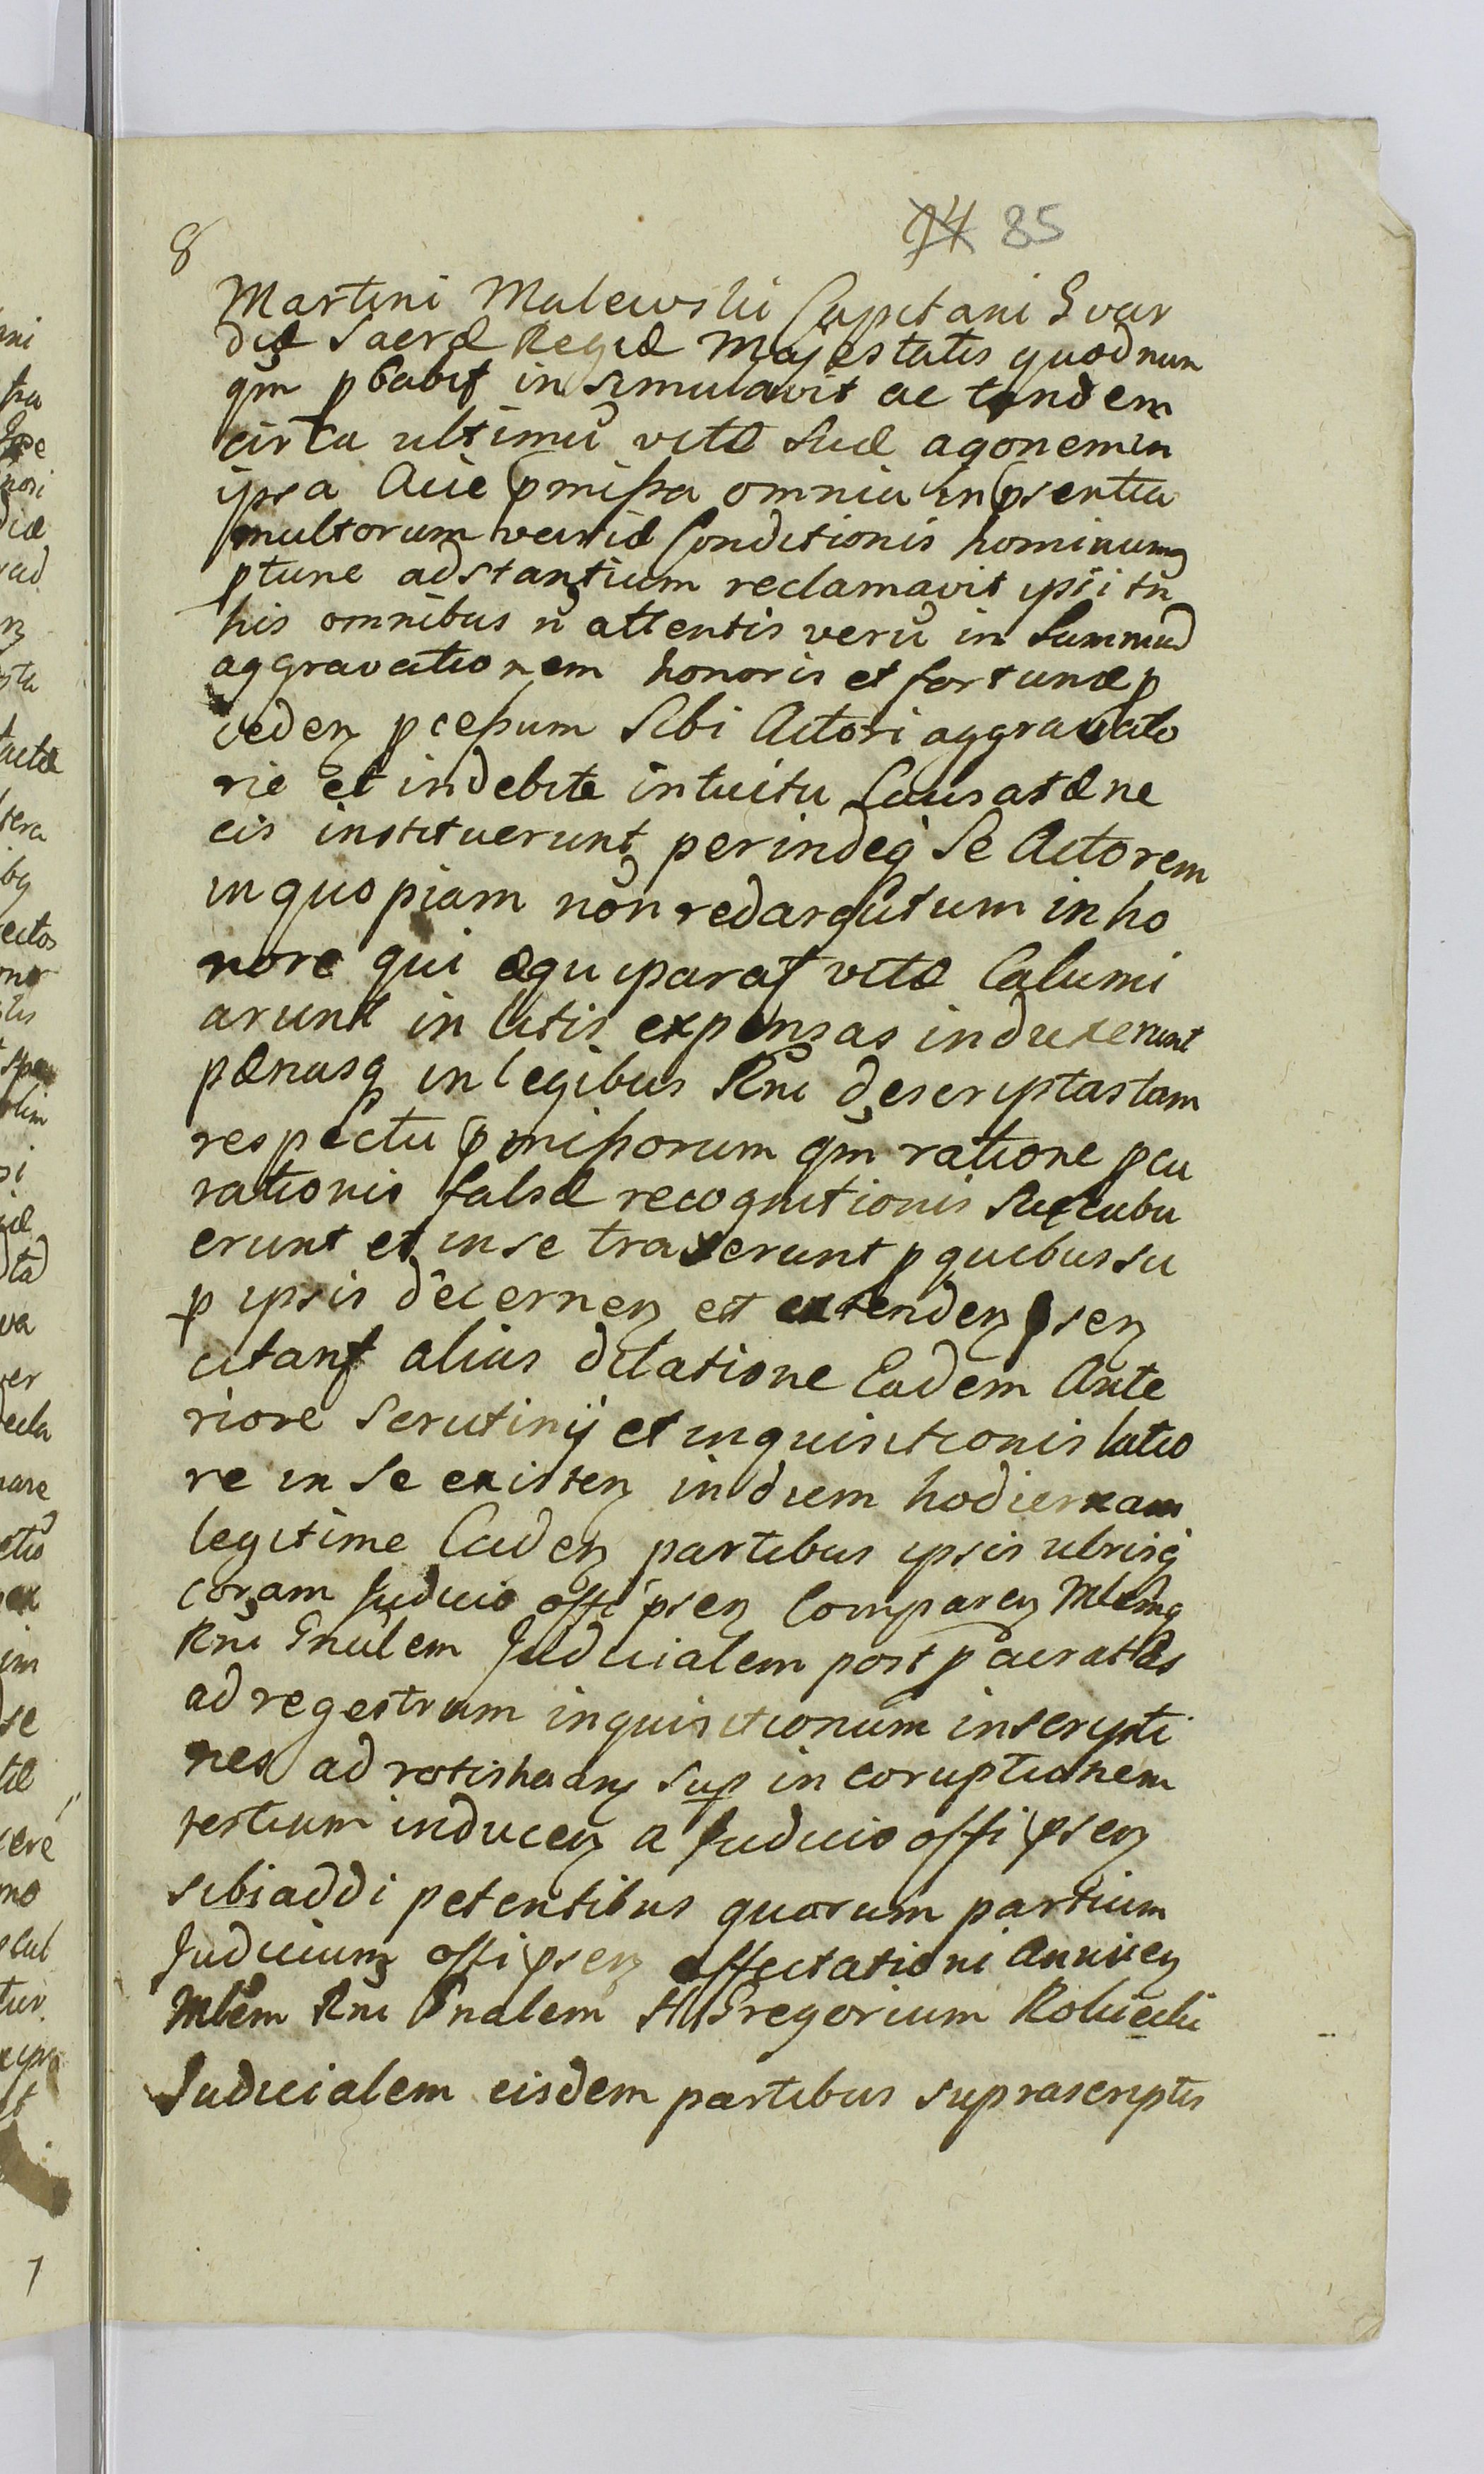 8
74 85
Martini Malewski Capitani Gvar
diæ Sacræ Regiæ Majestatis quod nun
qm pbabit insimulavit ac tandem
circa ultimũ vitæ Suæ agonem in
ipsa Acie pmissa omnia in psentia
multorum variæ Conditionis hominum
ptunc adstantium reclamavit ipsi tn
his omnibus ñ attentis verũ in Summã
aggravationem honoris et fortunæ p
ceden pcessum Sibi Actori aggravato
rie et indebite intuitu Causatæ ne
cis instituerunt perindeq Se Actorem
in quopiam non redargutum in ho
nore qui æquiparat vitæ Calumi
arunt in litis expensas induxerunt
pænasq in legibus Rni descriptas tam
respectu pmissorum qm ratione pcu
rationis falsæ recognitionis Succubu
erunt et in se traxerunt p quibus su
p ipsis decernen et extenden psen
citant alias dilatione Eadem Ante
riore Scrutinij et inquisitionis latio
re in Se existen in diem hodiernam
legitime Caden partibus ipsis utrisq
coram Judicio offi psen Comparen Mlemq
Rni Gnalem Judicialem post pcuratas
ad regestrum inquisitionum inscripti
nes ad rotisha any sup in coruptionem
testium inducen a Judicio offi psen
sibi addi petentibus quorum partium
Judicium offi psen affectationi Annuen
Mlem Rni Gnalem H Gregorium Roliecki
Judicialem eisdem partibus suprascriptis